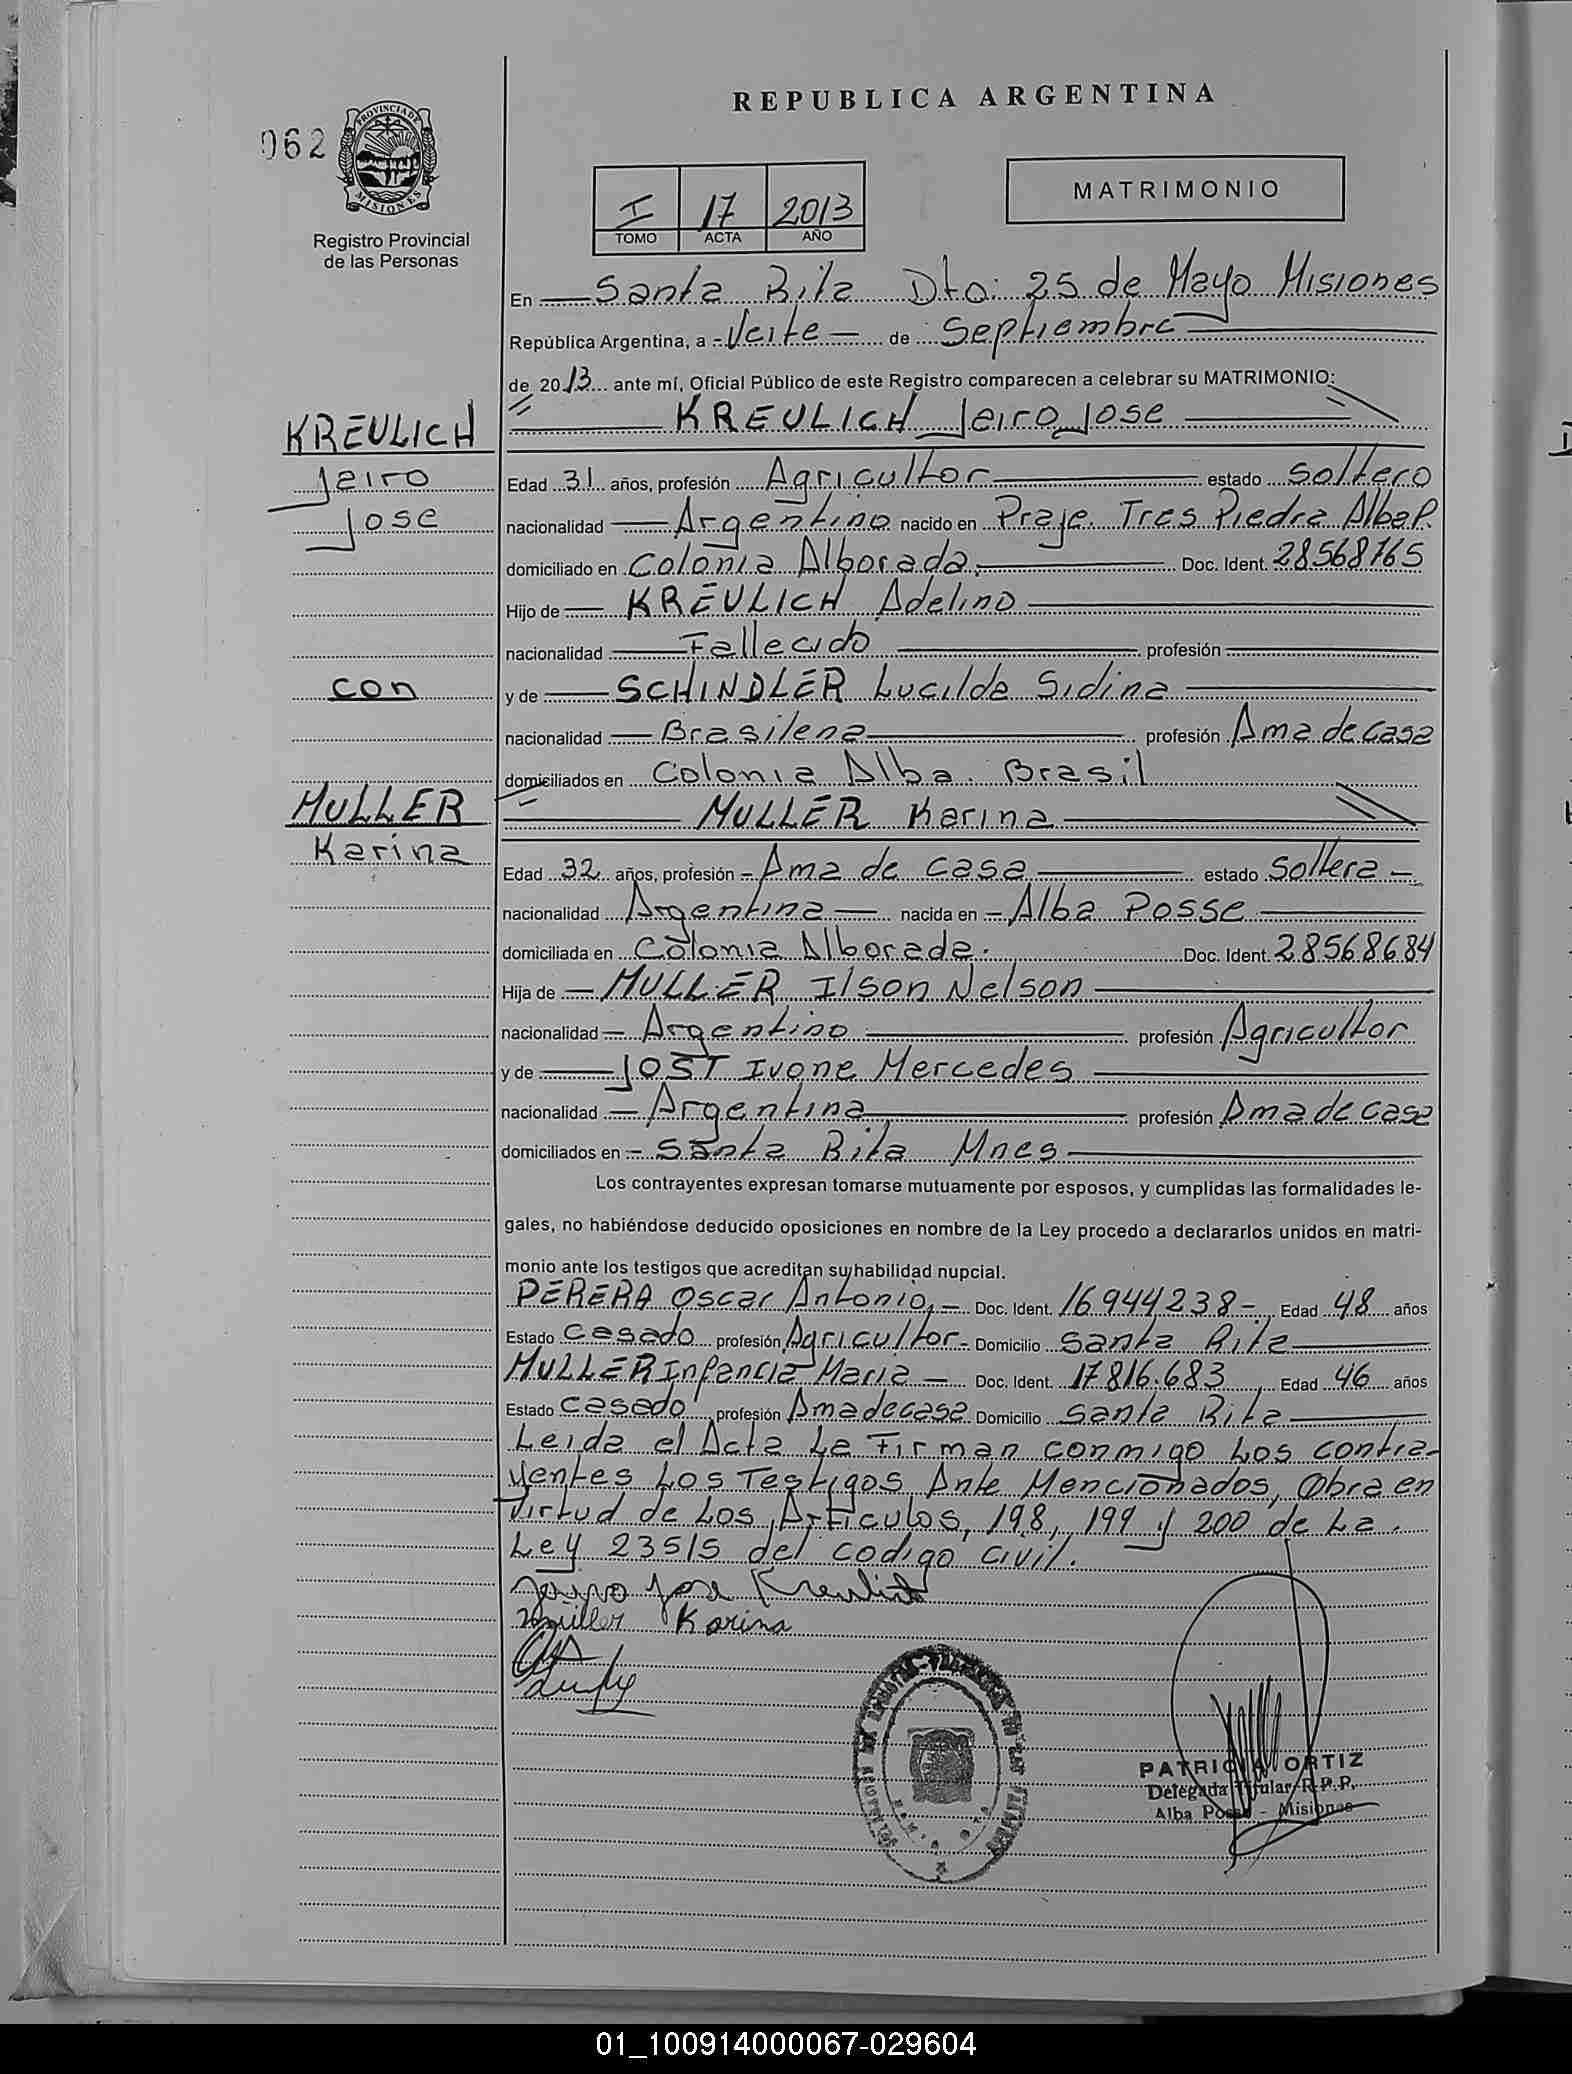 REPUBLICA ARGENTINA
062
PROVINCIA DE
MISIONES
Registro Provincial
de las Personas
I 17 2013
TOMO ACTA AÑO
MATRIMONIO
En Santa Rita Dto: 25 de Mayo Misiones
República Argentina, a Veite de Septiembre
de 2013 ante mí, Oficial Público de este Registro comparecen a celebrar su MATRIMONIO:
KREULICH Jeiro Jose
KREULICH
Jeiro
Jose
Edad 31 años, profesión Agricultor estado Soltero
nacionalidad Argentino nacido en Praje Tres Piedra Alba P.
domiciliado en Colonia Alborada. Doc. Ident. 28568765
Hijo de KREULICH Adelino
nacionalidad Fallecido profesión
con
y de SCHINDLER Lucilda Sidina
nacionalidad Brasilena profesión Ama de casa
domiciliados en Colonia Alba. Brasil
MULLER
Karina
MULLER Karina
Edad 32 años, profesión Ama de casa estado Soltera
nacionalidad Argentina nacida en Alba Posse
domiciliada en Colonia Alborada. Doc. Ident. 28568684
Hija de MULLER Ilson Nelson
nacionalidad Argentino profesión Agricultor
y de JOST Ivone Mercedes
nacionalidad Argentina profesión Ama de casa
domiciliados en Santa Rita Mnes
Los contrayentes expresan tomarse mutuamente por esposos, y cumplidas las formalidades le-
gales, no habiéndose deducido oposiciones en nombre de la Ley procedo a declararlos unidos en matri-
monio ante los testigos que acreditan su habilidad nupcial.
PERERA Oscar Antonio, Doc. Ident. 16944238 Edad 48 años
Estado Casado profesión Agricultor Domicilio Santa Rita
MULLER Infancia Maria Doc. Ident. 17816.683 Edad 46 años
Estado Casado profesión Ama de casa Domicilio Santa Rita
Leida el Acta La Firman conmigo Los contra-
yentes Los Testigos Ante Mencionados, Obra en
Virtud de Los Articulos, 198, 199 y 200 de La.
Ley 23515 del codigo civil.
Jairo Jose Kreulich
Müller Karina
PATRICIA ORTIZ
Delegada Titular R.P.P.
Alba Posse - Misiones
01_100914000067-029604